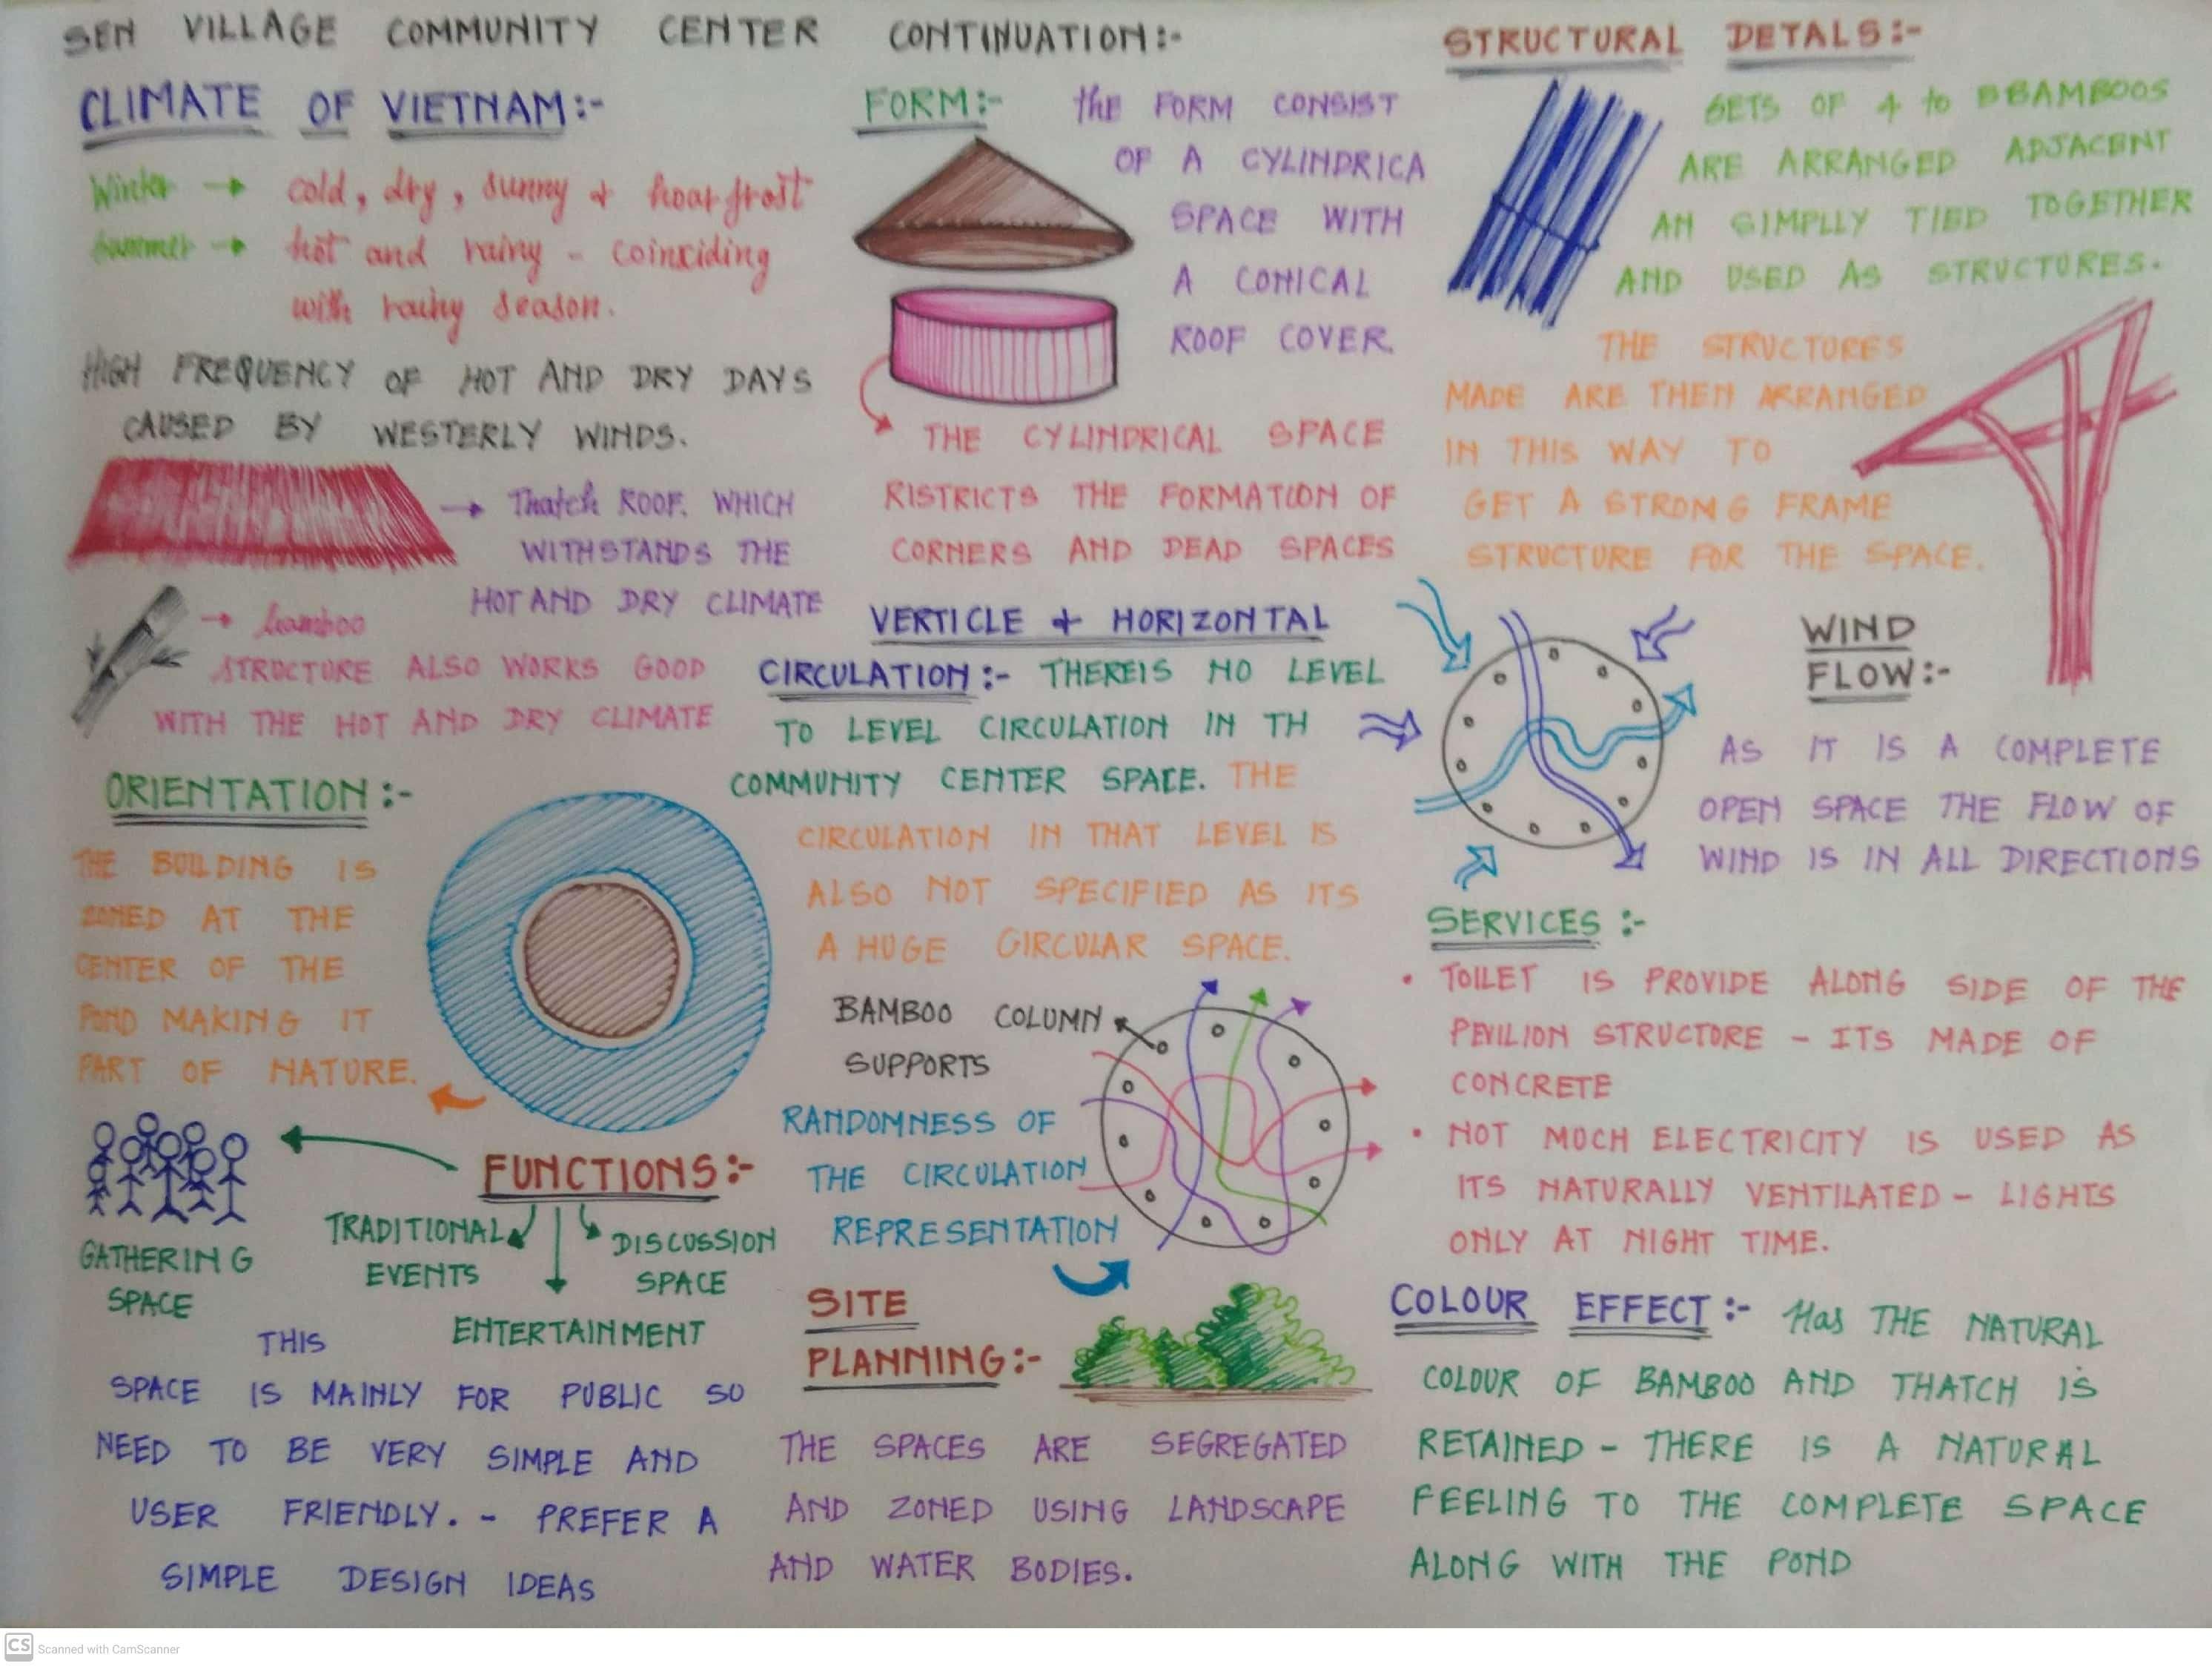 SEN VILLAGE COMMUNITY CENTER CONTINUATION:-
CLIMATE OF VIETNAM:-
Winter → cold, dry, sunny + hoar frost
Summer → hot and rainy - coinciding
with rainy season.
HIGH FREQUENCY OF HOT AND DRY DAYS
CAUSED BY WESTERLY WINDS.
→ Thatch ROOF. WHICH
WITHSTANDS THE
HOT AND DRY CLIMATE
→ bamboo
STRUCTURE ALSO WORKS GOOD
WITH THE HOT AND DRY CLIMATE
ORIENTATION:-
THE BUILDING IS
ZONED AT THE
CENTER OF THE
POND MAKING IT
PART OF NATURE.
FUNCTIONS:-
GATHERING
SPACE
TRADITIONAL
EVENTS
DISCUSSION
SPACE
ENTERTAINMENT
THIS
SPACE IS MAINLY FOR PUBLIC SO
NEED TO BE VERY SIMPLE AND
USER FRIENDLY. - PREFER A
SIMPLE DESIGN IDEAS
FORM:- the FORM CONSIST
OF A CYLINDRICA
SPACE WITH
A CONICAL
ROOF COVER.
THE CYLINDRICAL SPACE
RISTRICTS THE FORMATION OF
CORNERS AND DEAD SPACES
VERTICLE + HORIZONTAL
CIRCULATION:- THEREIS NO LEVEL
TO LEVEL CIRCULATION IN TH
COMMUNITY CENTER SPACE. THE
CIRCULATION IN THAT LEVEL IS
ALSO NOT SPECIFIED AS ITS
A HUGE CIRCULAR SPACE.
BAMBOO COLUMN
SUPPORTS
RANDOMNESS OF
THE CIRCULATION
REPRESENTATION
SITE
PLANNING:-
THE SPACES ARE SEGREGATED
AND ZONED USING LANDSCAPE
AND WATER BODIES.
STRUCTURAL DETALS:-
SETS OF 4 to BBAMBOOS
ARE ARRANGED ADJACENT
AN SIMPLLY TIED TOGETHER
AND USED AS STRUCTURES.
THE STRUCTURES
MADE ARE THEN ARRANGED
IN THIS WAY TO
GET A STRONG FRAME
STRUCTURE FOR THE SPACE.
WIND
FLOW:-
AS IT IS A COMPLETE
OPEN SPACE THE FLOW OF
WIND IS IN ALL DIRECTIONS
SERVICES:-
• TOILET IS PROVIDE ALONG SIDE OF THE
PEVILION STRUCTORE - ITS MADE OF
CONCRETE
• NOT MUCH ELECTRICITY IS USED AS
ITS NATURALLY VENTILATED - LIGHTS
ONLY AT NIGHT TIME.
COLOUR EFFECT:- Has THE NATURAL
COLOUR OF BAMBOO AND THATCH IS
RETAINED - THERE IS A NATURAL
FEELING TO THE COMPLETE SPACE
ALONG WITH THE POND
CS Scanned with CamScanner